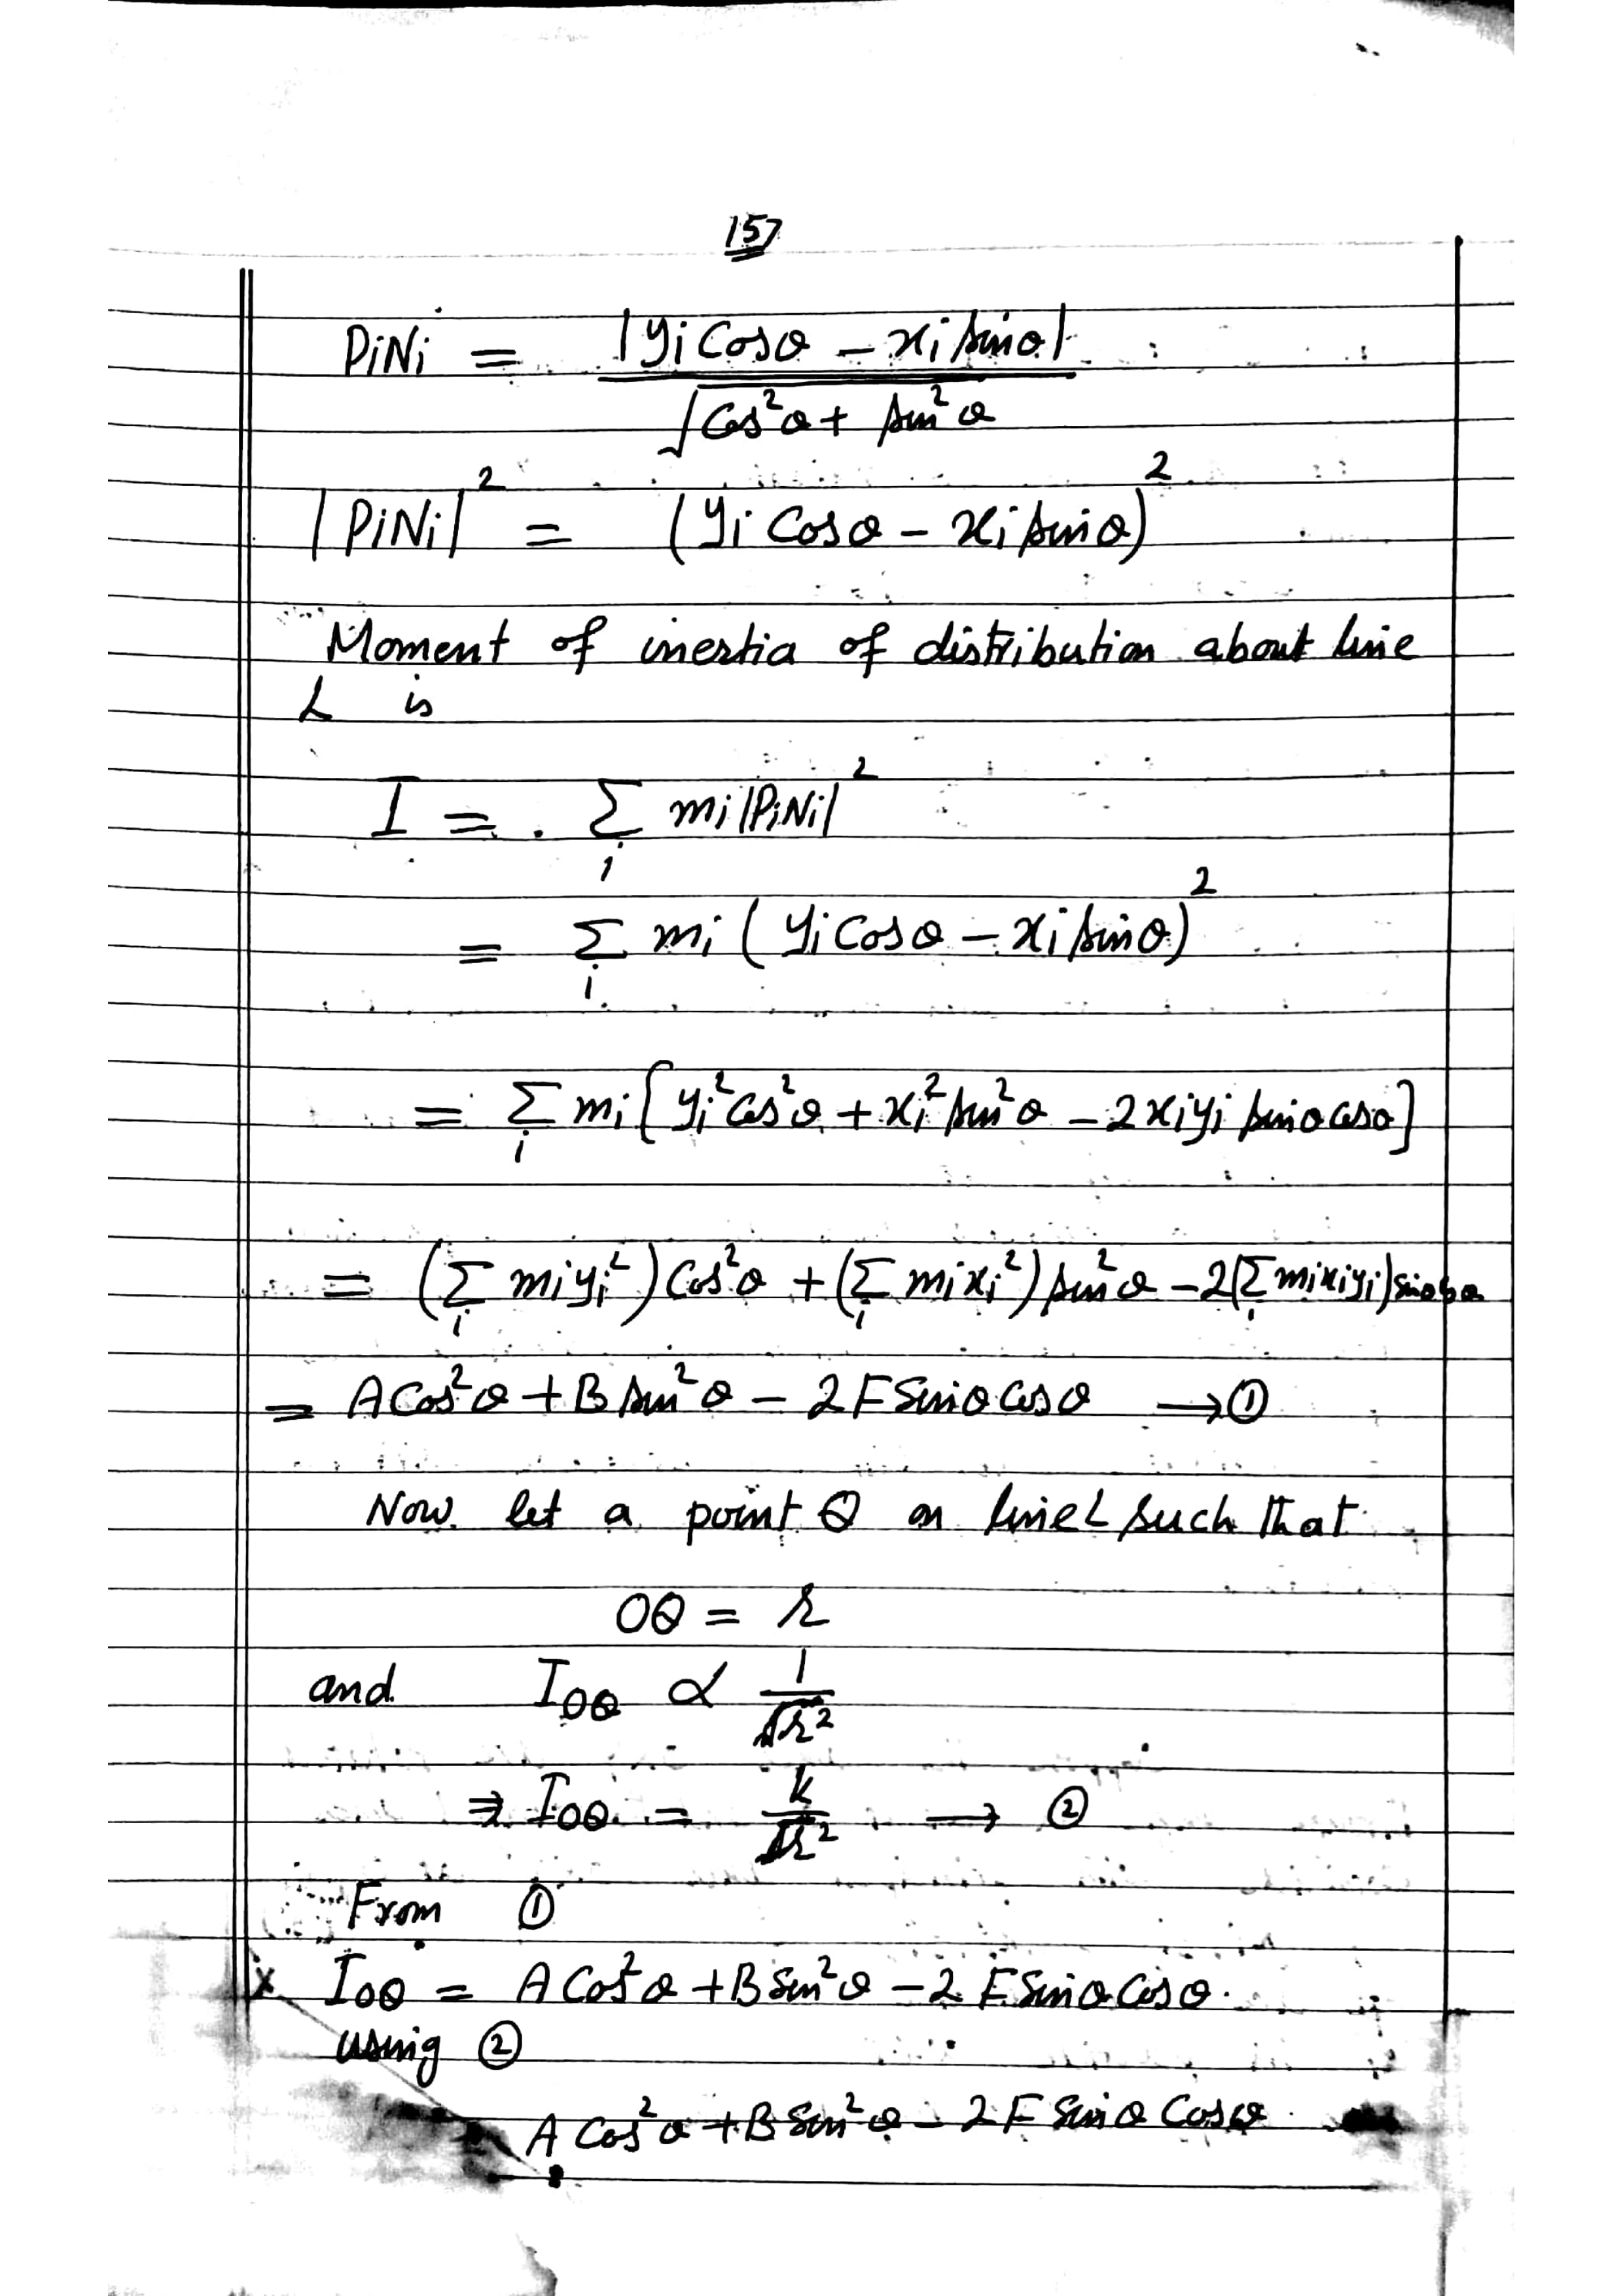 157
PiNi = |yi Cosθ − xi sinθ| / √(Cos²θ + sin²θ)
|PiNi|² = (yi Cosθ − xi sinθ)²
Moment of inertia of distribution about line
L is
I = Σi mi|PiNi|²
= Σi mi (yi Cosθ − xi sinθ)²
= Σi mi [yi² cos²θ + xi² sin²θ − 2xiyi sinθ cosθ]
= (Σi miyi²) Cos²θ + (Σi mixi²) sin²θ − 2(Σi mixiyi) sinθ
= A Cos²θ + B sin²θ − 2F Sinθ Cosθ → ①
Now let a point Q on line L such that
OQ = r
and I_OQ ∝ 1/r²
⇒ I_OQ = k/r² → ②
From ①
I_OQ = A Cos²θ + B Sin²θ − 2 F Sinθ Cosθ.
using ②
A Cos²θ + B Sin²θ − 2 F Sinθ Cosθ